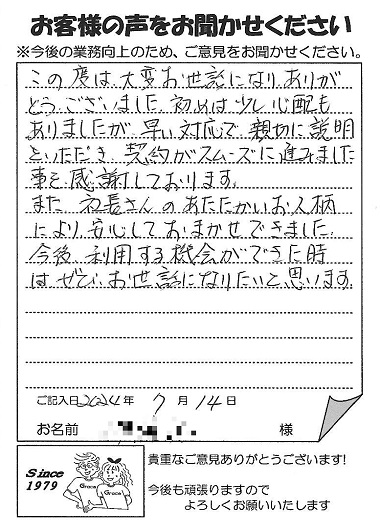 お客様の声をお聞かせください
※今後の業務向上のため、ご意見をお聞かせください。
この度は大変お世話になり、ありが
とうございました。初めは少し心配も
ありましたが、早い対応で、親切に説明
といただき、契約がスムーズに進みました
事を感謝しております。
また社長さんのあたたかいお人柄
により、安心しておまかせできました。
今後、利用する機会ができた時
はぜひ、お世話になりたいと思います。
ご記入日 2024年 7月 14日
お名前 様
Since
1979
Grace
Grace
貴重なご意見ありがとうございます!
今後も頑張りますので
よろしくお願いいたします